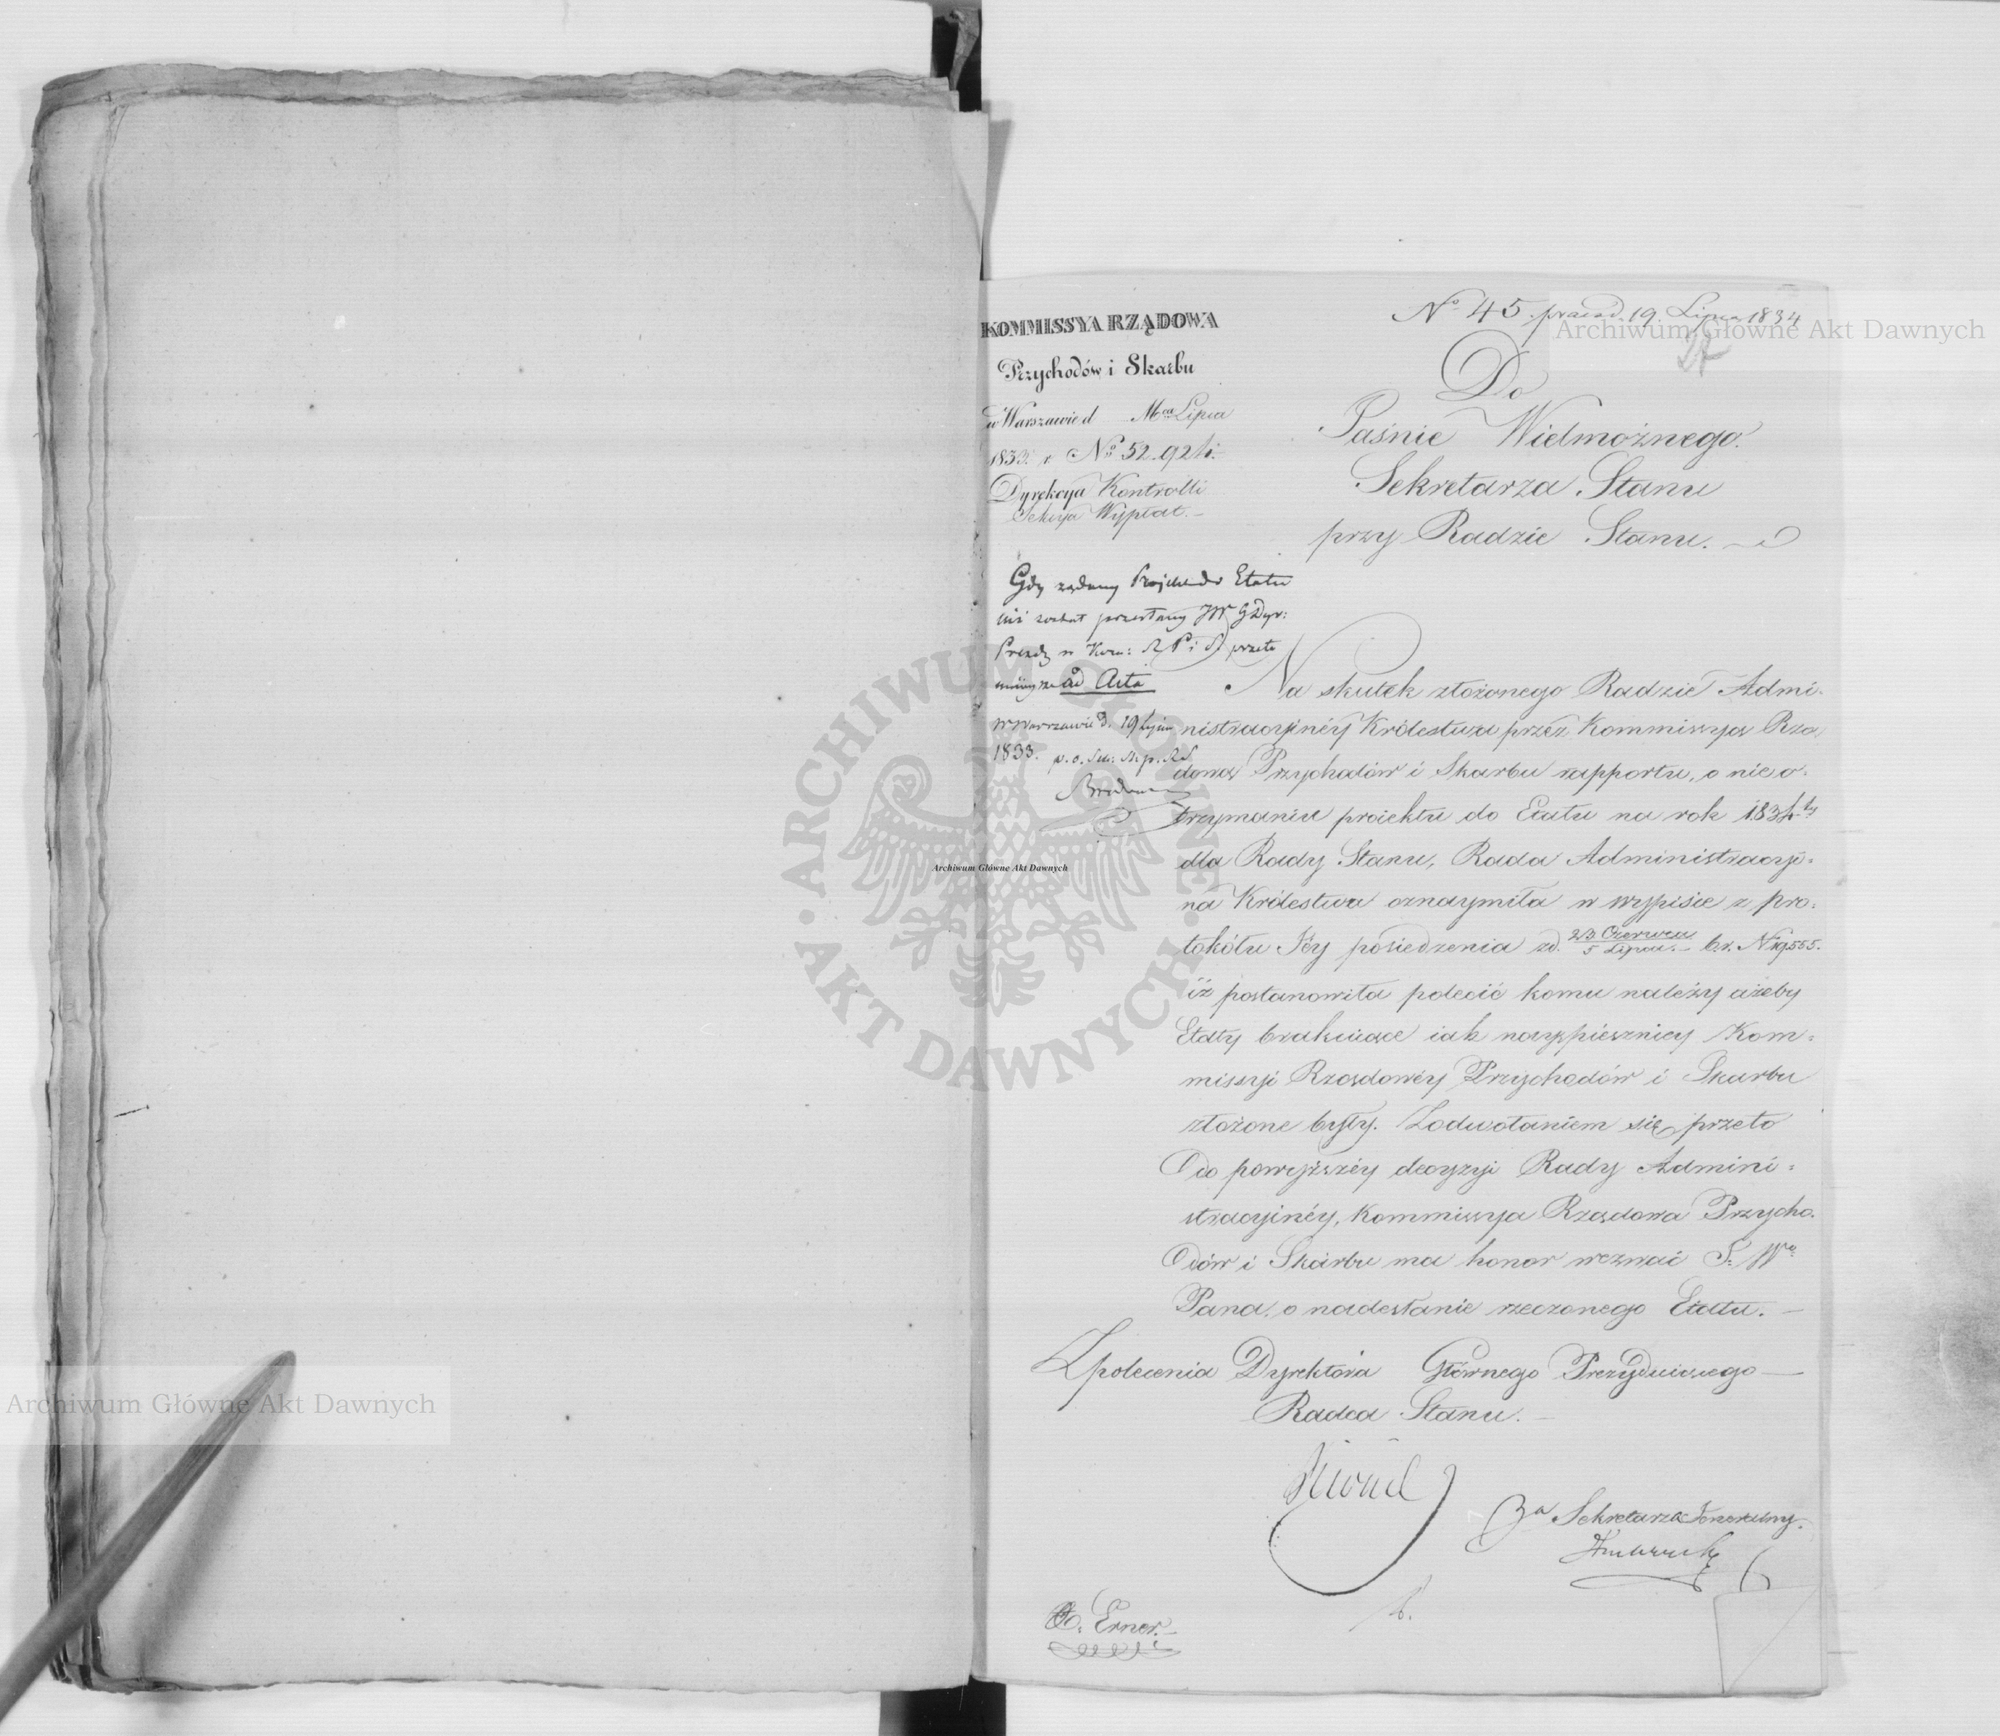 No 45. praesd. 19. Lipca 1834
KOMMISSYA RZĄDOWA
Przychodów i Skarbu
w Warszawie d Mca Lipca
1833. r. No 52.921
Dyrekcya Kontrolli
Sekcya Wypłat.
Do
Jaśnie Wielmożnego
Sekretarza Stanu
przy Radzie Stanu.
Gdy żądany Projekt do Etatu
już został przesłany JW G Dyr:
Prezdz w Kom: R P i S przeto
ninieysze ad Acta
w Warszawie d. 19 Lipca
1833. p. o. Sek: St. p. R S.
Na skutek złożonego Radzie Admi-
nistracyinéy Królestwa przez Kommissyą Rzą
dową Przychodów i Skarbu rapportu, o nieo-
trzymaniu proiektu do Etatu na rok 1834ty
dla Rady Stanu, Rada Administracyi-
na Królestwa oznaymiła w wypisie z pro-
tokółu Jéy posiedzenia zd. 23 Czerwca / 5 Lipca b.r. No 19555.
iż postanowiła polecić komu należy ażeby
Etaty brakuiące iak nayspieszniey Kom-
missyi Rządowéy Przychodów i Skarbu
złożone były. Z odwołaniem się przeto
do powyższéy decyzyi Rady Admini-
stracyinéy, Kommissya Rządowa Przycho-
dów i Skarbu ma honor wezwać J: Wo
Pana, o nadesłanie rzeczonego Etatu.
Z polecenia Dyrektora Głównego Prezyduiącego
Radca Stanu.
Za Sekretarza Jeneralny.
Erner.
Archiwum Główne Akt Dawnych
Archiwum Główne Akt Dawnych
Archiwum Główne Akt Dawnych
ARCHIWUM GŁÓWNE · AKT DAWNYCH ·